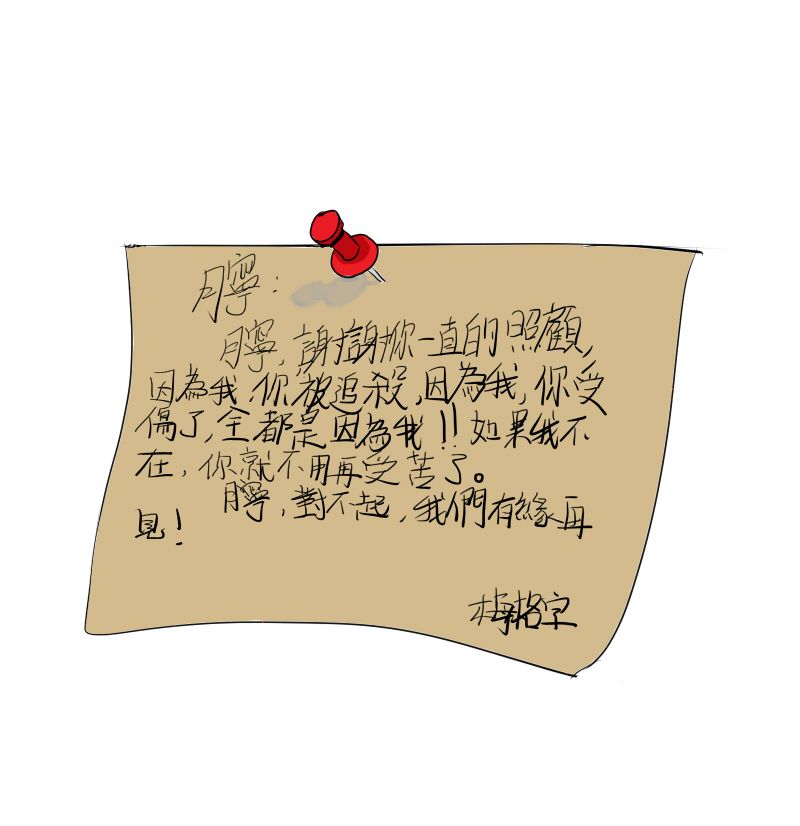 月寧：
月寧，謝謝妳一直的照顧，
因為我，你被追殺，因為我，你受
傷了，全都是因為我!!如果我不
在，你就不用再受苦了。
月寧，對不起，我們有緣再
見！
梅格字